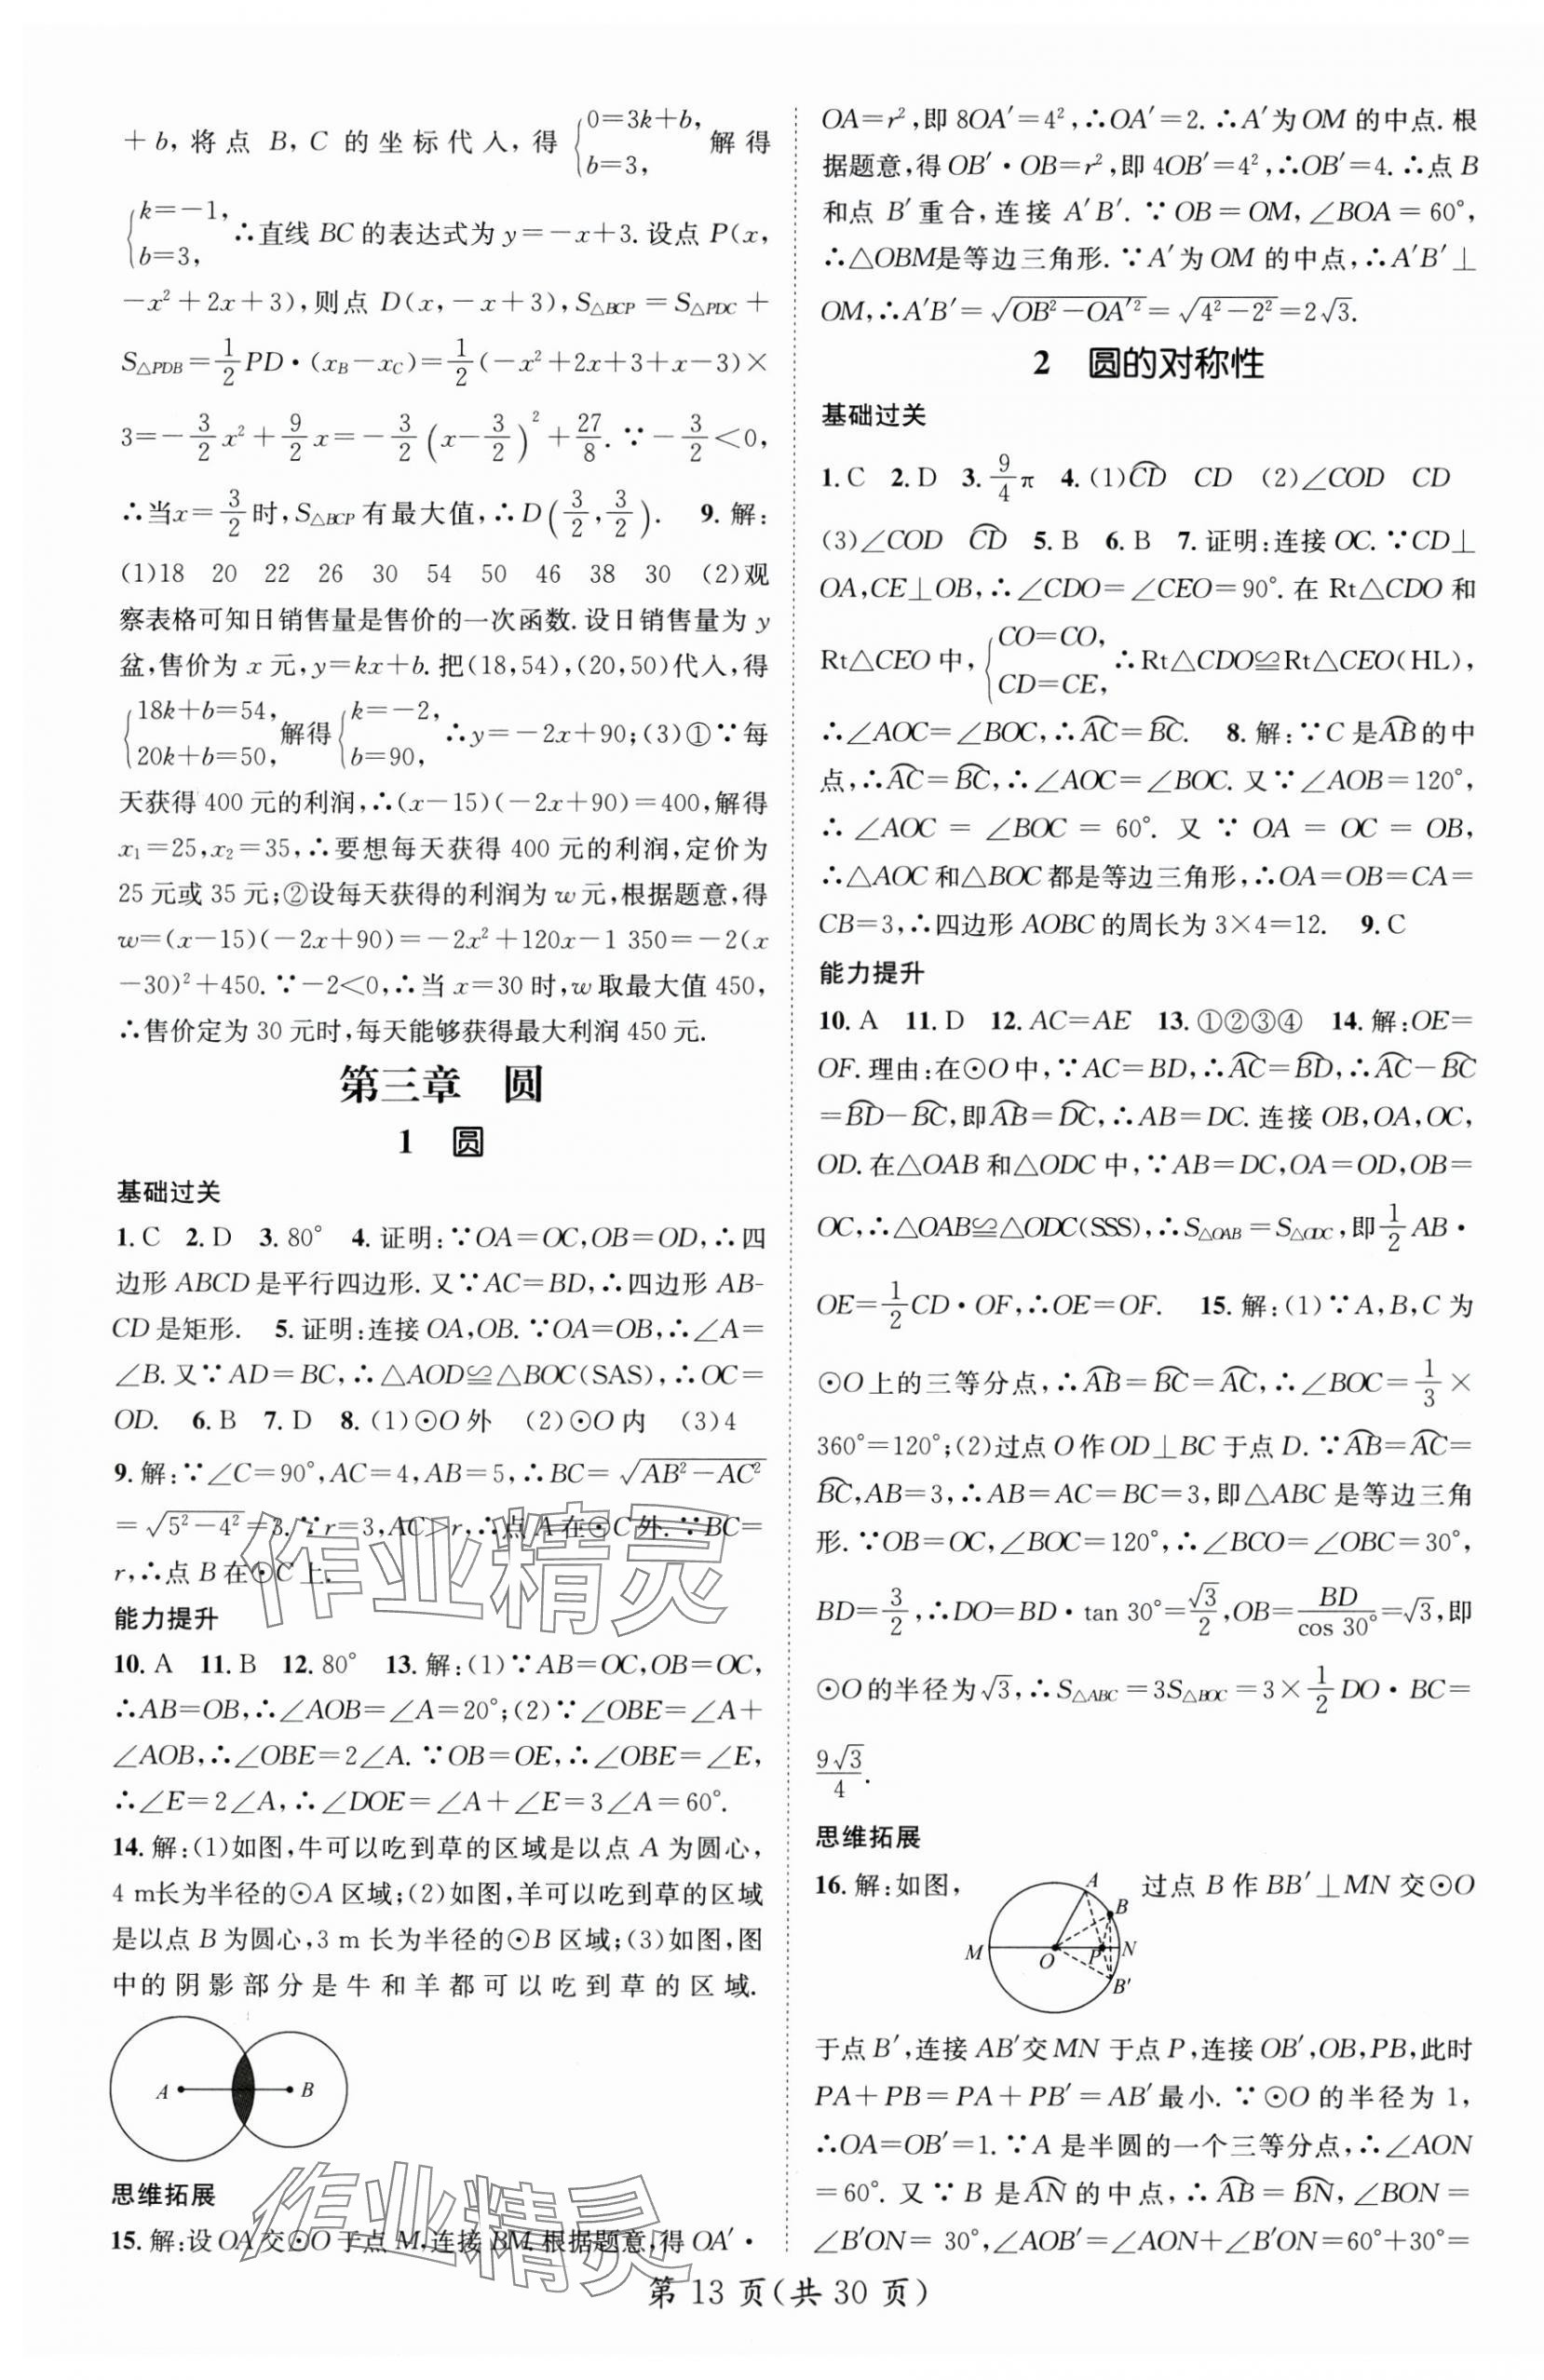 +b,将点 B,C 的坐标代入,得{0=3k+b, b=3, 解得
{k=-1, b=3, ∴直线 BC 的表达式为 y=-x+3. 设点 P(x,
-x²+2x+3),则点 D(x,-x+3),S△BCP=S△PDC+
S△PDB=1/2 PD·(xB-xC)=1/2(-x²+2x+3+x-3)×
3=-3/2 x²+9/2 x=-3/2(x-3/2)²+27/8. ∵-3/2<0,
∴当x=3/2时,S△BCP有最大值,∴D(3/2,3/2). 9. 解:
(1)18 20 22 26 30 54 50 46 38 30 (2)观
察表格可知日销售量是售价的一次函数. 设日销售量为 y
盆,售价为 x 元,y=kx+b. 把(18,54),(20,50)代入,得
{18k+b=54, 20k+b=50, 解得{k=-2, b=90, ∴y=-2x+90;(3)①∵每
天获得 400 元的利润,∴(x-15)(-2x+90)=400,解得
x₁=25,x₂=35,∴要想每天获得 400 元的利润,定价为
25 元或 35 元;②设每天获得的利润为 w 元,根据题意,得
w=(x-15)(-2x+90)=-2x²+120x-1 350=-2(x
-30)²+450. ∵-2<0,∴当 x=30 时,w 取最大值 450,
∴售价定为 30 元时,每天能够获得最大利润 450 元.
第三章 圆
1 圆
基础过关
1. C 2. D 3. 80° 4. 证明:∵OA=OC,OB=OD,∴四
边形 ABCD 是平行四边形. 又∵AC=BD,∴四边形 AB-
CD 是矩形. 5. 证明:连接 OA,OB. ∵OA=OB,∴∠A=
∠B. 又∵AD=BC,∴△AOD≌△BOC(SAS),∴OC=
OD. 6. B 7. D 8. (1)⊙O 外 (2)⊙O 内 (3)4
9. 解:∵∠C=90°,AC=4,AB=5,∴BC=√(AB²-AC²)
=√(5²-4²)=3. ∵r=3,AC>r,∴点 A 在⊙C 外. ∵BC=
r,∴点 B 在⊙C 上.
能力提升
10. A 11. B 12. 80° 13. 解:(1)∵AB=OC,OB=OC,
∴AB=OB,∴∠AOB=∠A=20°;(2)∵∠OBE=∠A+
∠AOB,∴∠OBE=2∠A. ∵OB=OE,∴∠OBE=∠E,
∴∠E=2∠A,∴∠DOE=∠A+∠E=3∠A=60°.
14. 解:(1)如图,牛可以吃到草的区域是以点 A 为圆心,
4 m长为半径的⊙A 区域;(2)如图,羊可以吃到草的区域
是以点 B 为圆心,3 m 长为半径的⊙B 区域;(3)如图,图
中的阴影部分是牛和羊都可以吃到草的区域.
A B
思维拓展
15. 解:设 OA 交⊙O 于点 M,连接 BM. 根据题意,得 OA′·
作业精灵
作业精灵
OA=r²,即 8OA′=4²,∴OA′=2. ∴A′为 OM 的中点. 根
据题意,得 OB′·OB=r²,即 4OB′=4²,∴OB′=4. ∴点 B
和点 B′重合,连接 A′B′. ∵OB=OM,∠BOA=60°,
∴△OBM是等边三角形. ∵A′为 OM 的中点,∴A′B′⊥
OM,∴A′B′=√(OB²-OA′²)=√(4²-2²)=2√3.
2 圆的对称性
基础过关
1. C 2. D 3. 9/4 π 4. (1)⌒CD CD (2)∠COD CD
(3)∠COD ⌒CD 5. B 6. B 7. 证明:连接 OC. ∵CD⊥
OA,CE⊥OB,∴∠CDO=∠CEO=90°. 在 Rt△CDO 和
Rt△CEO 中,{CO=CO, CD=CE, ∴Rt△CDO≌Rt△CEO(HL),
∴∠AOC=∠BOC,∴⌒AC=⌒BC. 8. 解:∵C 是⌒AB的中
点,∴⌒AC=⌒BC,∴∠AOC=∠BOC. 又∵∠AOB=120°,
∴∠AOC=∠BOC=60°. 又∵OA=OC=OB,
∴△AOC 和△BOC 都是等边三角形,∴OA=OB=CA=
CB=3,∴四边形 AOBC 的周长为 3×4=12. 9. C
能力提升
10. A 11. D 12. AC=AE 13. ①②③④ 14. 解:OE=
OF. 理由:在⊙O 中,∵AC=BD,∴⌒AC=⌒BD,∴⌒AC-⌒BC
=⌒BD-⌒BC,即⌒AB=⌒DC,∴AB=DC. 连接 OB,OA,OC,
OD. 在△OAB 和△ODC 中,∵AB=DC,OA=OD,OB=
OC,∴△OAB≌△ODC(SSS),∴S△OAB=S△ODC,即1/2 AB·
OE=1/2 CD·OF,∴OE=OF. 15. 解:(1)∵A,B,C 为
⊙O 上的三等分点,∴⌒AB=⌒BC=⌒AC,∴∠BOC=1/3×
360°=120°;(2)过点 O 作 OD⊥BC 于点 D. ∵⌒AB=⌒AC=
⌒BC,AB=3,∴AB=AC=BC=3,即△ABC 是等边三角
形. ∵OB=OC,∠BOC=120°,∴∠BCO=∠OBC=30°,
BD=3/2,∴DO=BD·tan 30°=√3/2,OB=BD/cos 30°=√3,即
⊙O的半径为√3,∴S△ABC=3S△BOC=3×1/2 DO·BC=
9√3/4.
思维拓展
16. 解:如图, 过点 B 作 BB′⊥MN 交⊙O
A B M O P N B′
于点 B′,连接 AB′交 MN 于点 P,连接 OB′,OB,PB,此时
PA+PB=PA+PB′=AB′最小. ∵⊙O 的半径为 1,
∴OA=OB′=1. ∵A 是半圆的一个三等分点,∴∠AON
=60°. 又∵B 是⌒AN的中点,∴⌒AB=⌒BN,∠BON=
∠B′ON=30°,∠AOB′=∠AON+∠B′ON=60°+30°=
第 13 页(共 30 页)